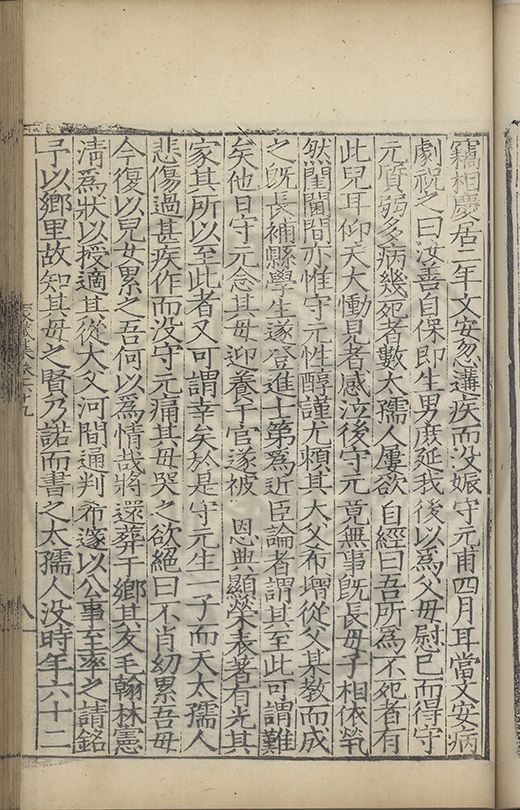 竊相慶居二年文安忽遘疾而没娠守元甫四月耳當文安病
劇祝之曰汝善自保即生男庶延我後以為父母慰已而得守
元質弱多病幾死者數太孺人屢欲自經曰吾所為不死者有
此兒耳仰天大慟見者感泣後守元竟無事既長母子相依煢
然閨闥間亦惟守元性醇謹尤賴其大父希增從父某教而成
之既長補縣學生遂登進士第為近臣論者謂其至此可謂難
矣他日守元念其母迎養于官遂被 恩典顯榮表著有光其
家其所以至此者又可謂幸矣於是守元生一子而夭太孺人
悲傷過甚疾作而没守元痛其母哭之欲絕曰不肖幼累吾母
今復以兒女累之吾何以為情哉將還葬于鄉其友毛翰林憲
清為狀以授適其從大父河間通判希遂以公事至率之請銘
予以鄉里故知其母之賢乃諾而書之太孺人没時年六十二
八